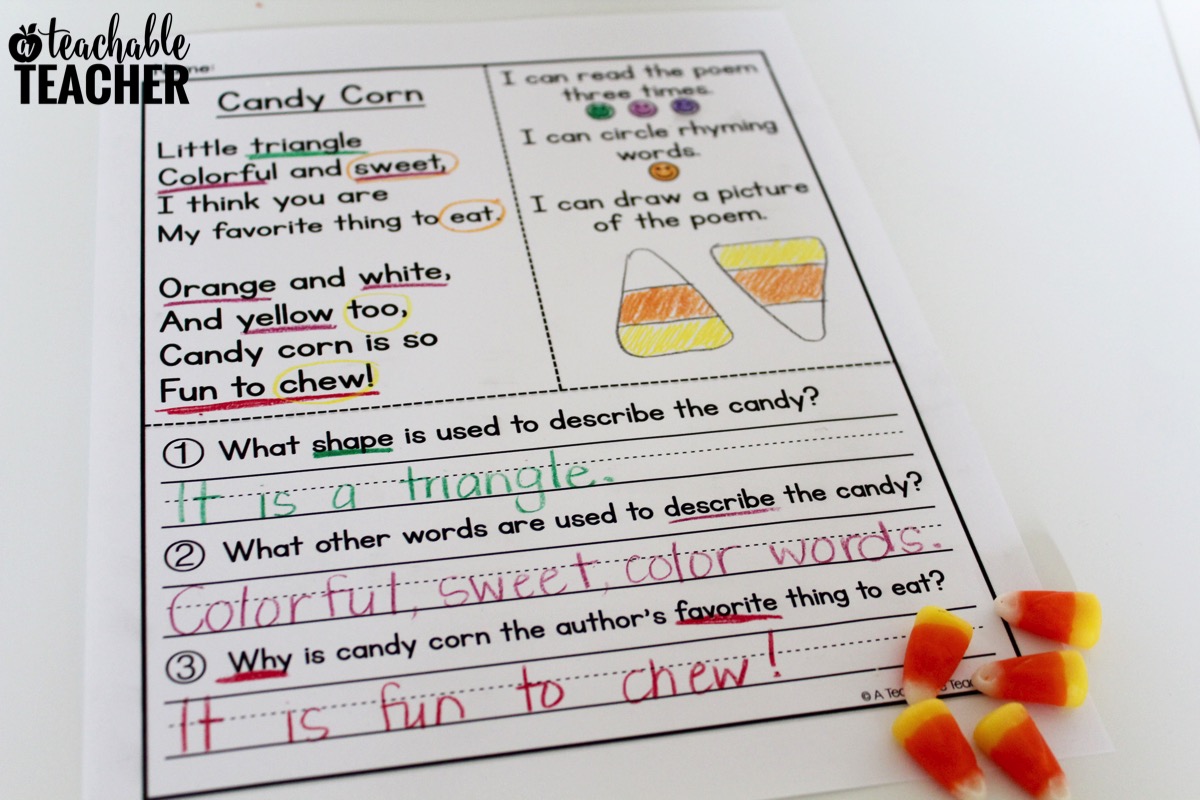 a teachable
TEACHER
Candy Corn
Little triangle
Colorful and sweet,
I think you are
My favorite thing to eat.
Orange and white,
And yellow too,
Candy corn is so
Fun to chew!
I can read the poem
three times.
I can circle rhyming
words.
I can draw a picture
of the poem.
1 What shape is used to describe the candy?
It is a triangle.
2 What other words are used to describe the candy?
Colorful, sweet, color words.
3 Why is candy corn the author's favorite thing to eat?
It is fun to chew!
© A